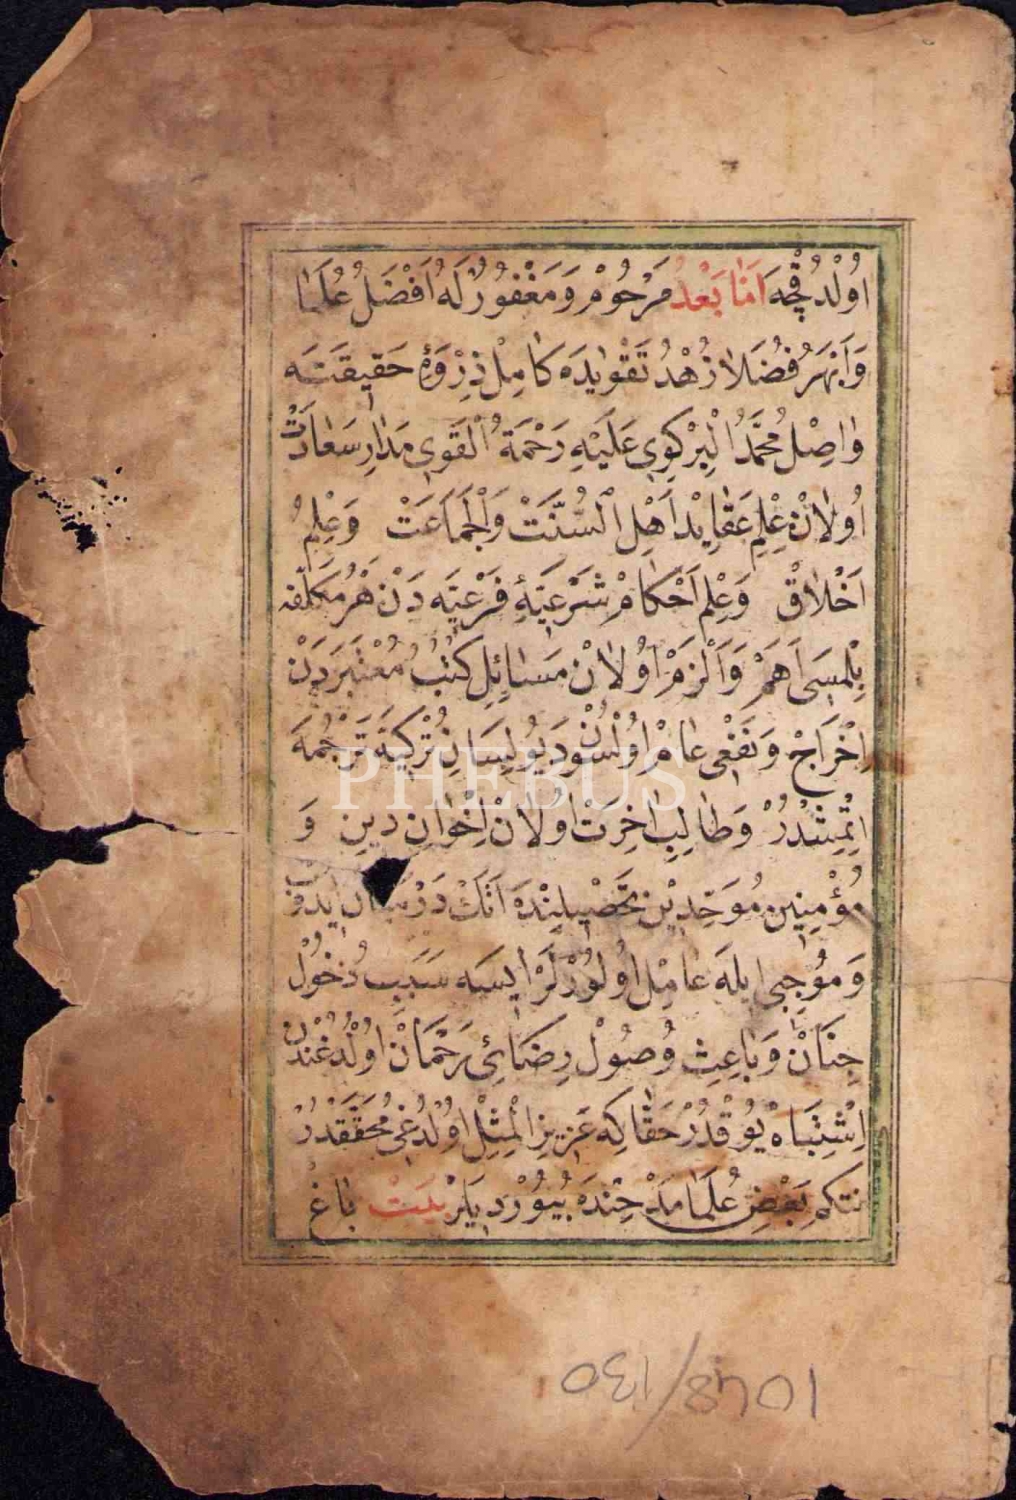 اُولْدُقْچَه اَمَّا بَعْدُ مَرْحُومْ وَ مَغْفُورٌ لَهُ اَفْضَلُ عُلَمَا
وَاَبْهَرُ فُضَلَا زُهْدُ تَقْوَايَدَه كَامِلْ ذِرْوَهٔ حَقِيقَتَه
وَاصِلْ مُحَمَّدُ الْبِرْكِوِى عَلَيْهِ رَحْمَةُ الْقَوِى مَدَارِ سَعَادَتْ
اُولَانْ عِلْمِ عَقَايِدْ اَهْلِ السُّنَّتْ وَالْجَمَاعَتْ وَعِلْمِ
اَخْلَاقْ وَعِلْمِ اَحْكَامْ شَرْعِيَّهٔ فَرْعِيَّه دَنْ هَرْ مُكَلَّفه
بِلْمَسِى اَهَمْ وَاَلْزَمْ اُولَانْ مَسَائِلِ كُتُبُ مُعْتَبَرَدَنْ
اِخْرَاجْ وَ نَفْعِى عَامْ اُولْسُونْ دَيُو لِسَانِ تُرْكِيَه تَرْجُمَه
اِتْمِشْدُرْ وَطَالِبِ اٰخِرَتْ اُولَانْ اِخْوَانِ دِينِ وَ
مُؤْمِنِينِ مُوَحِّدِيْن تَحْصِيلِنْدَه اَنَكْ دَرْ ايدوب
وَ مُوجِبِى ايلَه عَامِلْ اُولُورْلَرْ ايسَه سَبَبِ دُخُولْ
جِنَانْ وَ بَاعِثِ وُصُولْ رِضَائِ رَحْمَانْ اُولْدُغُنْدَنْ
اِشْتِبَاهْ يُوقْدُرْ حَقَّا كِه عَزِيزِ الْمِثِلْ اُولْدُغِى مُحَقَّقْدُرْ
نتكم بَعْضِ عُلَمَا مَدْحِنْدَه بُيُورْدِيلَرْ بَيَتْ بَاغِ
PHEBUS
1048/130